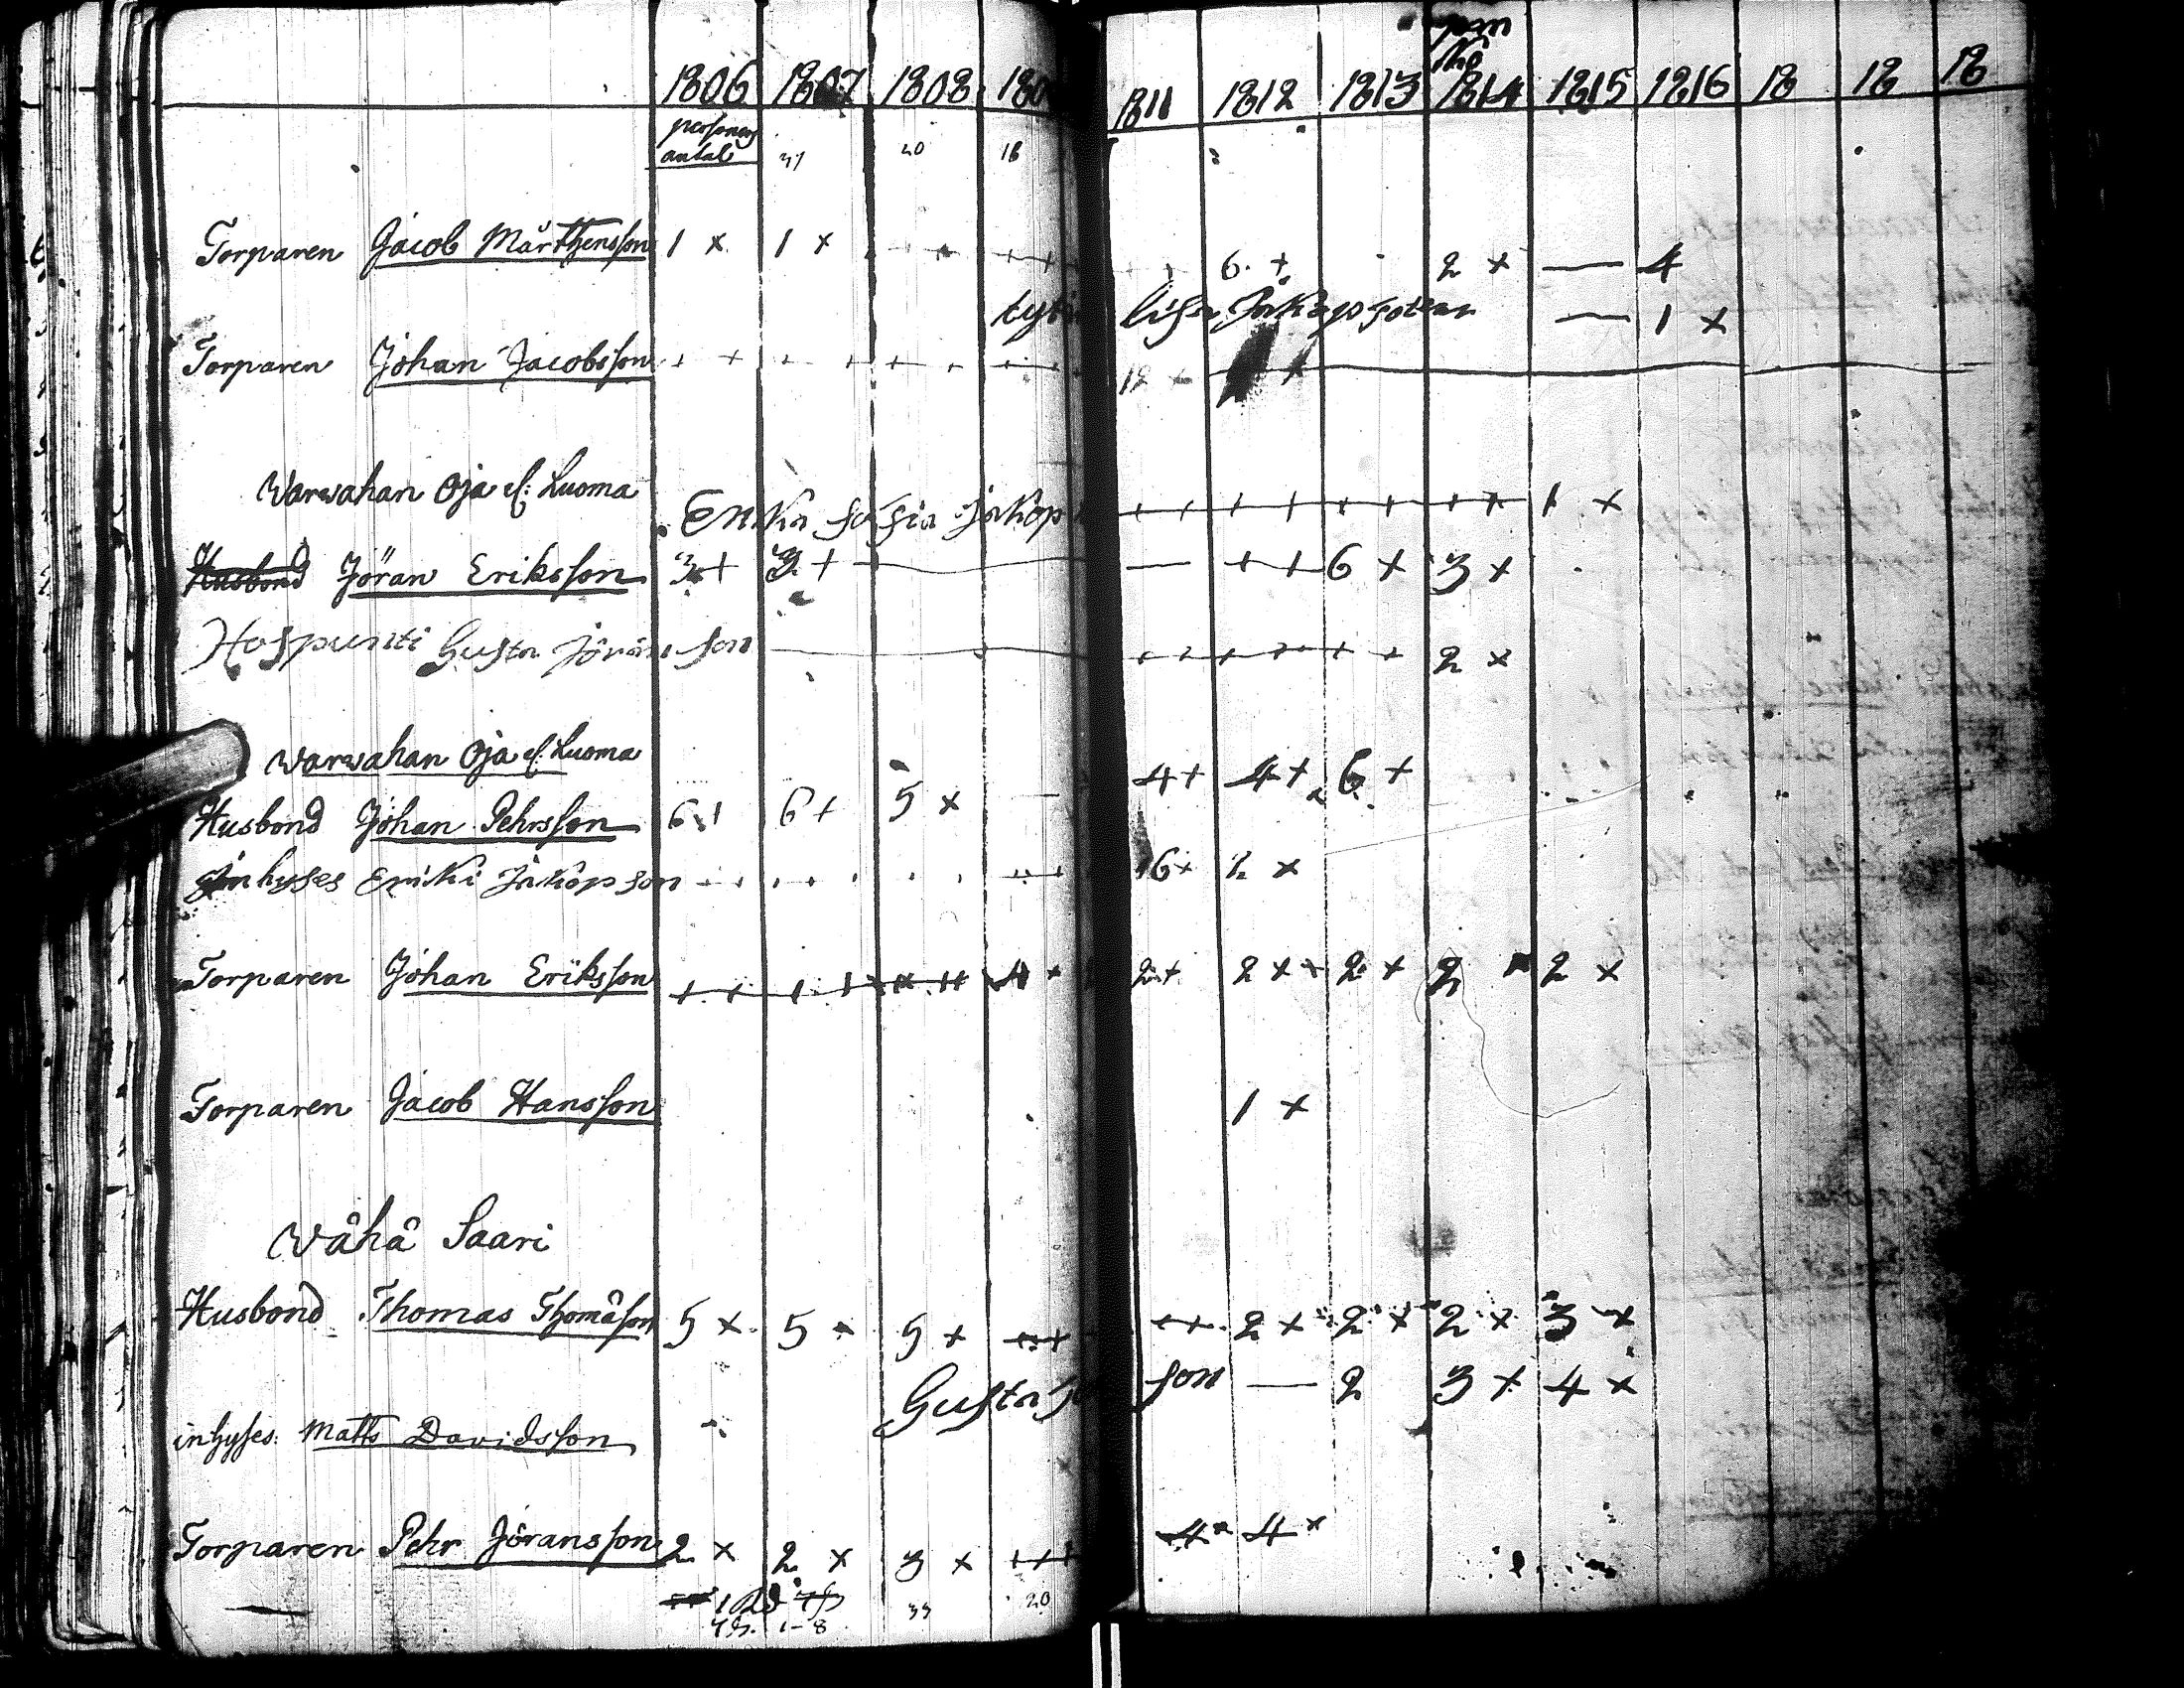 1806 1807 1808 180 1811 1812 1813 1814 1815 1816 18 18 18
personers
antal 37 20 18
Torparen Jacob Mårthensson 1 x 1 x 6 + 2 x — 4
lisa Jakopsotter — 1 x
Torparen Johan Jacobsson 12
Warwahan Oja el. Luoma
Erika sofia jakop 1 x
Husbond Jöran Eriksson 3 + 3 + — + + 6 x 3 x
Hospunti Gusta Jöran son 2 x
Warwahan Oja el. Luoma
Husbond Johan Pehrsson 6 + 6 + 5 x 4 + 4 + 6 +
inhyses Eriki Jakopson 6 x 2 x
Torparen Johan Eriksson 4 x 2 + 2 x 2 x 2 2 x
Torparen Jacob Hansson 1 x
Wåhå Saari
Husbond Thomas Thomåson 5 x 5 5 x 2 x 2 x 2 x 3 x
Gusta son — 2 3 x 4 x
inhyses Matts Davidsson
Torparen Pehr Jöransson 2 x 2 x 3 x 4 x 4 x
33 20
1 - 8